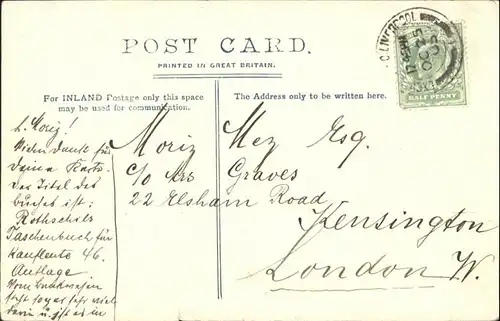 POST CARD.
PRINTED IN GREAT BRITAIN.
For INLAND Postage only this space
may be used for communication.
The Address only to be written here.
LIVERPOOL
HALF PENNY
L. Moriz!
Vielen Dank für
Deine Karte.
Der Titel des
Buches ist:
Rothschilds
Taschenbuch für
Kaufleute 46.
Auflage
Vom Bankwesen
sehr viel
darin u. ist es in
Moriz Mez Esq.
c/o Mrs Graves
22 Elsham Road
Kensington
London W.